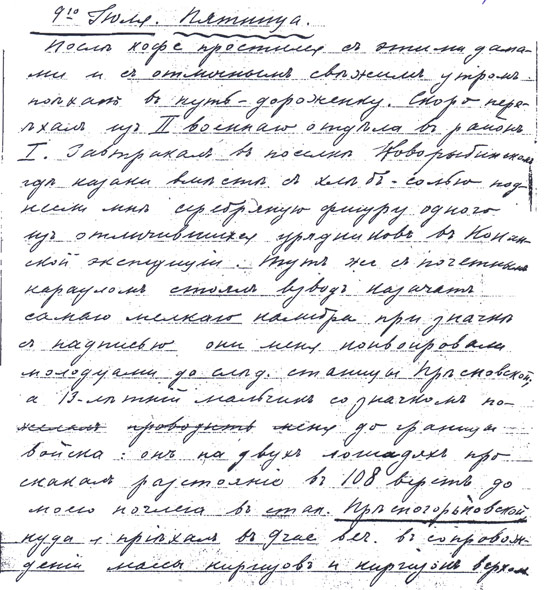 9го Iюля. Пятница.
Послѣ кофе простился съ этими дама-
ми и съ отличнымъ свѣжимъ утромъ
поѣхалъ въ путь-дороженку. Скоро пере-
ѣхалъ изъ II военнаго отдѣла въ районъ
I. Завтракалъ въ поселкѣ Новорыбинскомъ
гдѣ казаки вмѣстѣ съ хлѣбъ-солью под-
несли мнѣ серебряную фигуру одного
изъ отличившихся урядниковъ въ Кокан-
ской экспедицiи. Тутъ же съ почетнымъ
карауломъ стоялъ взводъ казачатъ
самаго мелкаго калибра при значкѣ
съ надписью они меня конвоировали
молодцами до слѣд. станицы Прѣсновской,
а 13-лѣтнiй мальчикъ со значкомъ по-
желалъ проводить меня до границы
войска: онъ на двухъ лошадяхъ про
скакалъ разстоянiе въ 108 верстъ до
моего ночлега въ стан. Прѣсногорьковской
куда я прiѣхалъ въ 9 час веч. въ сопровож-
денiи массы киргизовъ и киргизокъ верхомъ